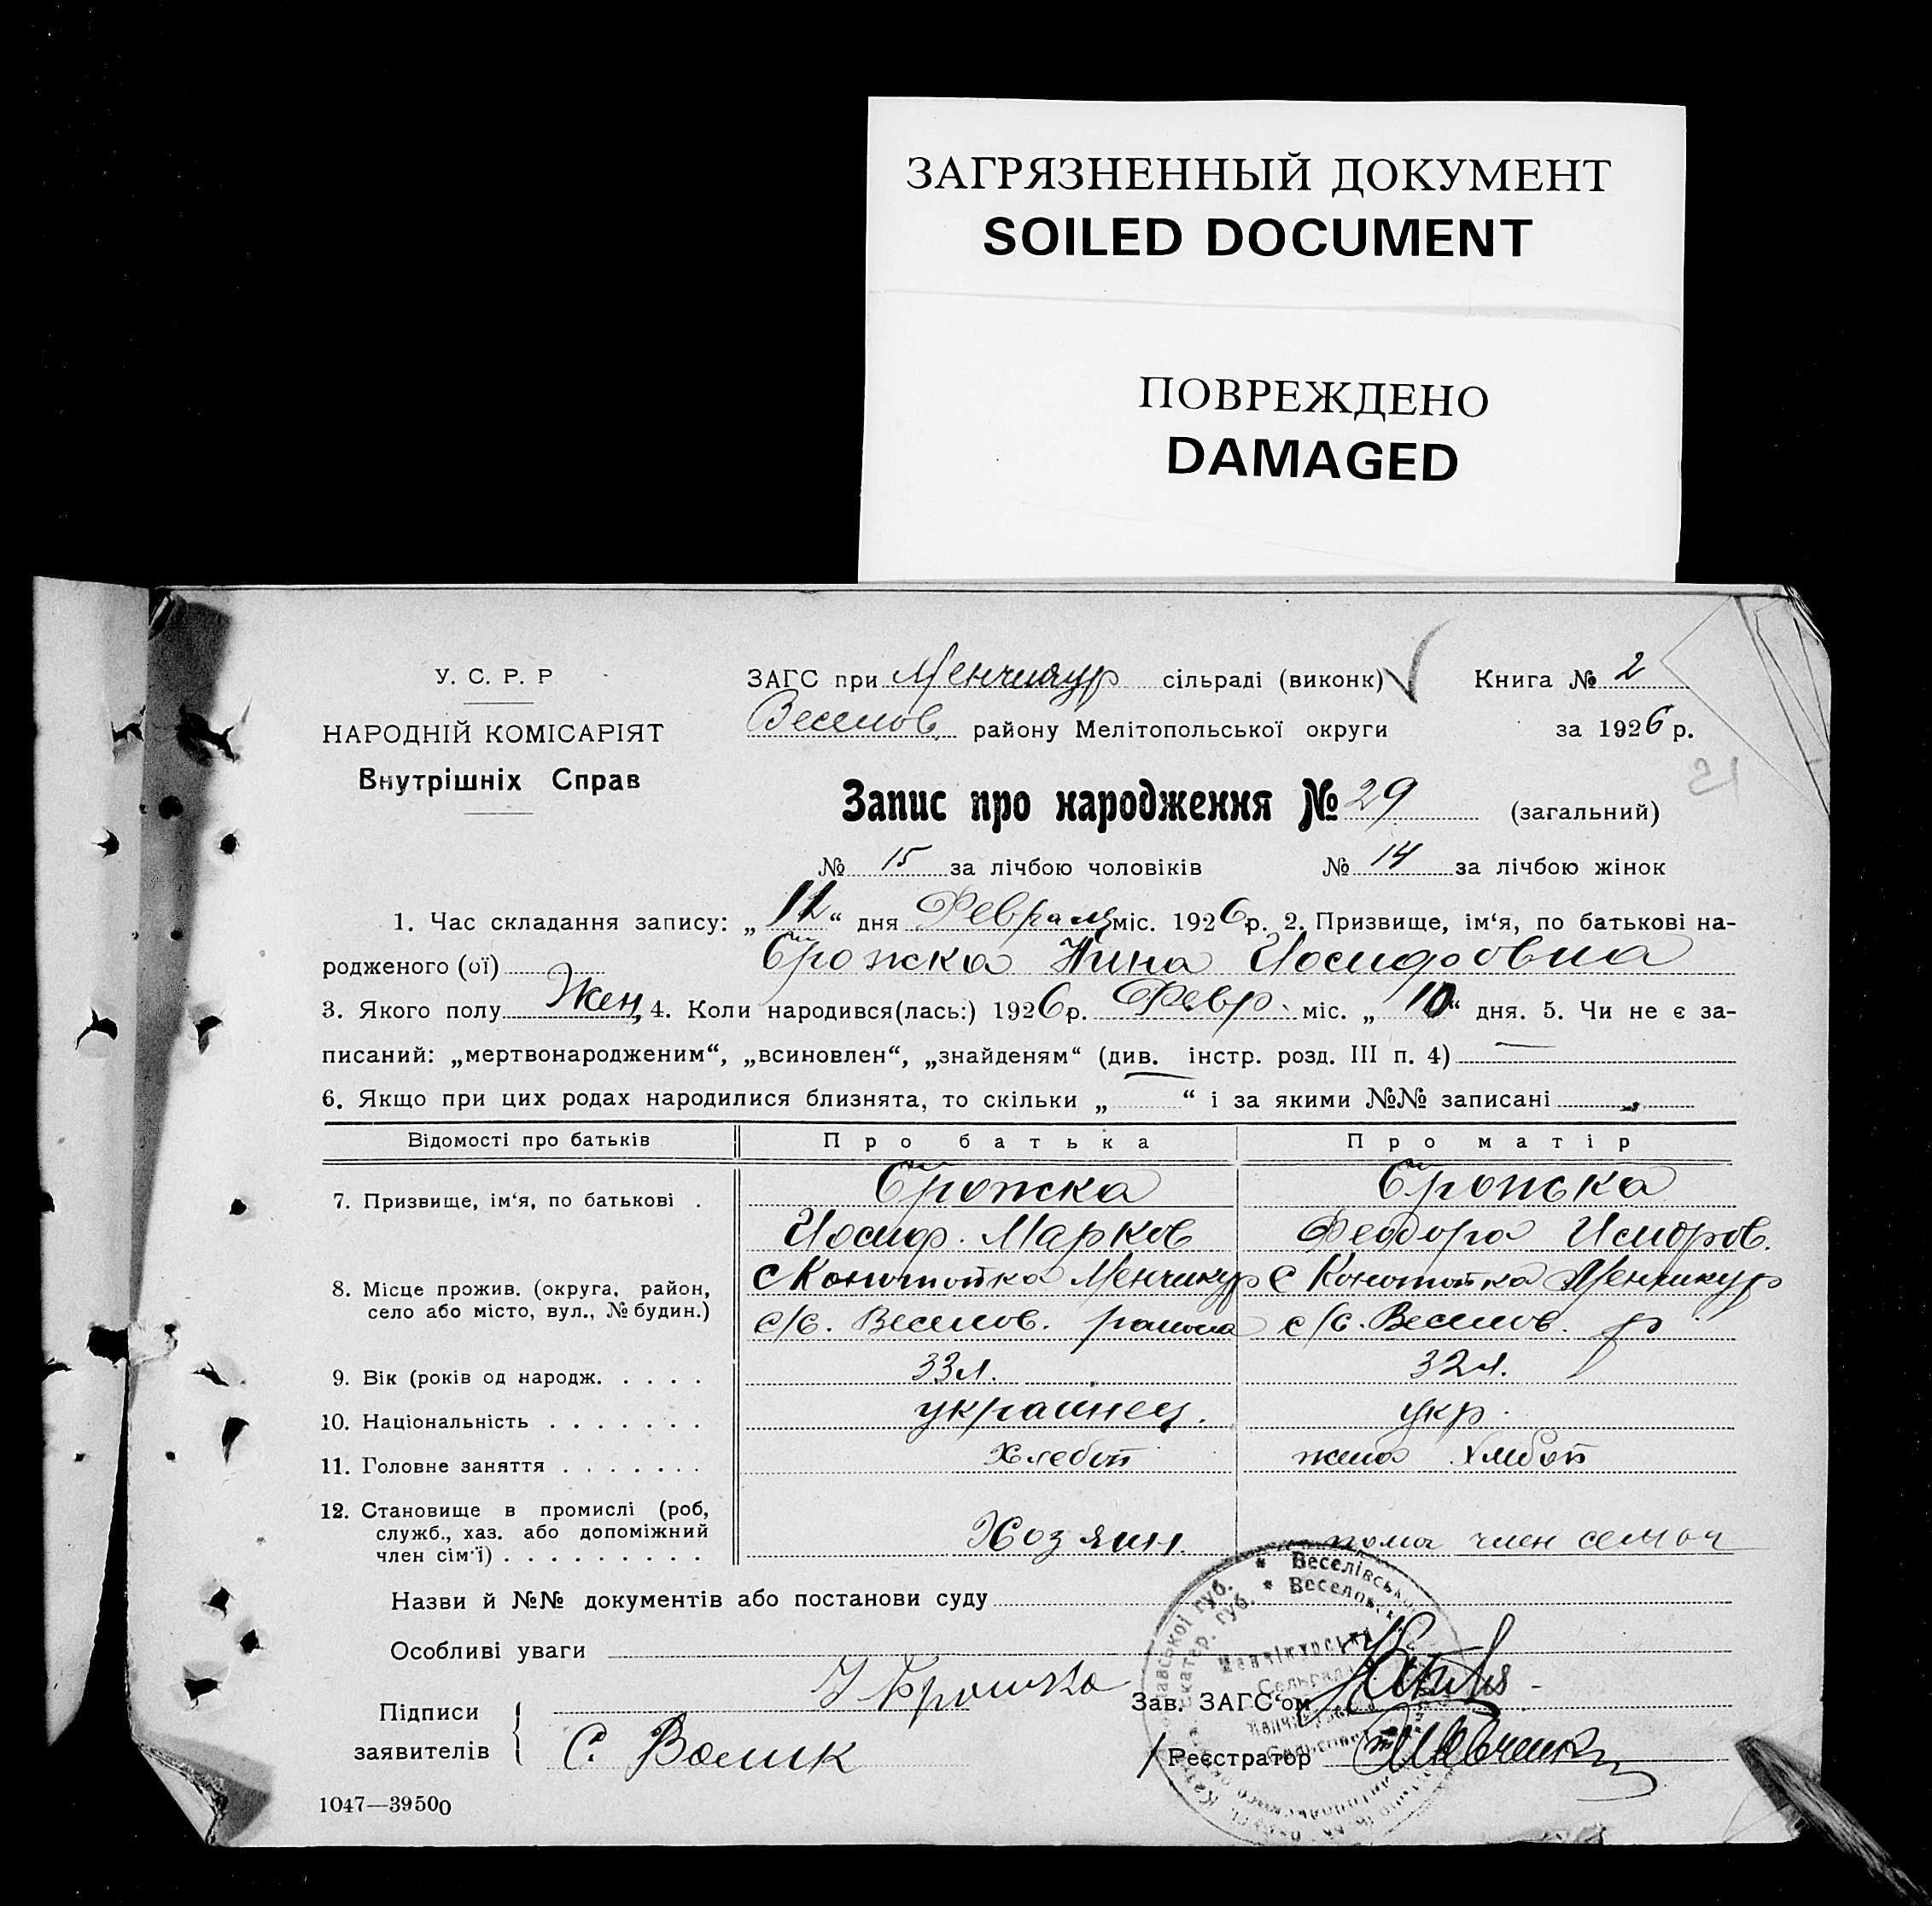 ЗАГРЯЗНЕННЫЙ ДОКУМЕНТ
SOILED DOCUMENT
ПОВРЕЖДЕНО
DAMAGED
У. С. Р. Р
НАРОДНІЙ КОМІСАРІЯТ
Внутрішніх Справ
ЗАГС при Менчикур сільраді (виконк) Книга № 2
Веселов. району Мелітопольської округи за 1926 р.
21
Запис про народження № 29 (загальний)
№ 15 за лічбою чоловіків № 14 за лічбою жінок
1. Час складання запису: „12“ дня Февраля міс. 1926 р. 2. Призвище, ім‘я, по батькові на-
родженого (ої) Нина Иосифовна
3. Якого полу Жен, 4. Коли народився(лась:) 1926 р. Февр. міс. „10“ дня. 5. Чи не є за-
писаний: „мертвонародженим“, „всиновлен“, „знайденям“ (див. інстр. розд. III п. 4) —
6. Якщо при цих родах народилися близнята, то скільки „ — “ і за якими №№ записані
Відомості про батьків Про батька Про матір
7. Призвище, ім‘я, по батькові .
Иосиф. Марков Феодора Исидров.
8. Місце прожив. (округа, район,
село або місто, вул., № будин.)
с Конотопка Менчикур с Конотопка Менчикур
с/с. Веселов. района с/с. Веселов. р
9. Вік (років од народж. . . . . 33 л. 32 л.
10. Національність . . . . . . . украинец. укр.
11. Головне заняття . . . . . . . Хлебоп жена Хлебоп
12. Становище в промислі (роб,
служб., хаз. або допоміжний
член сім‘ї) . . . . . . . . . Хозяин. член семьи
Назви й №№ документів або постанови суду
Особливі уваги
Підписи
заявителів
С. Волик
Зав. ЗАГС‘ом
Реєстратор
1047—39500